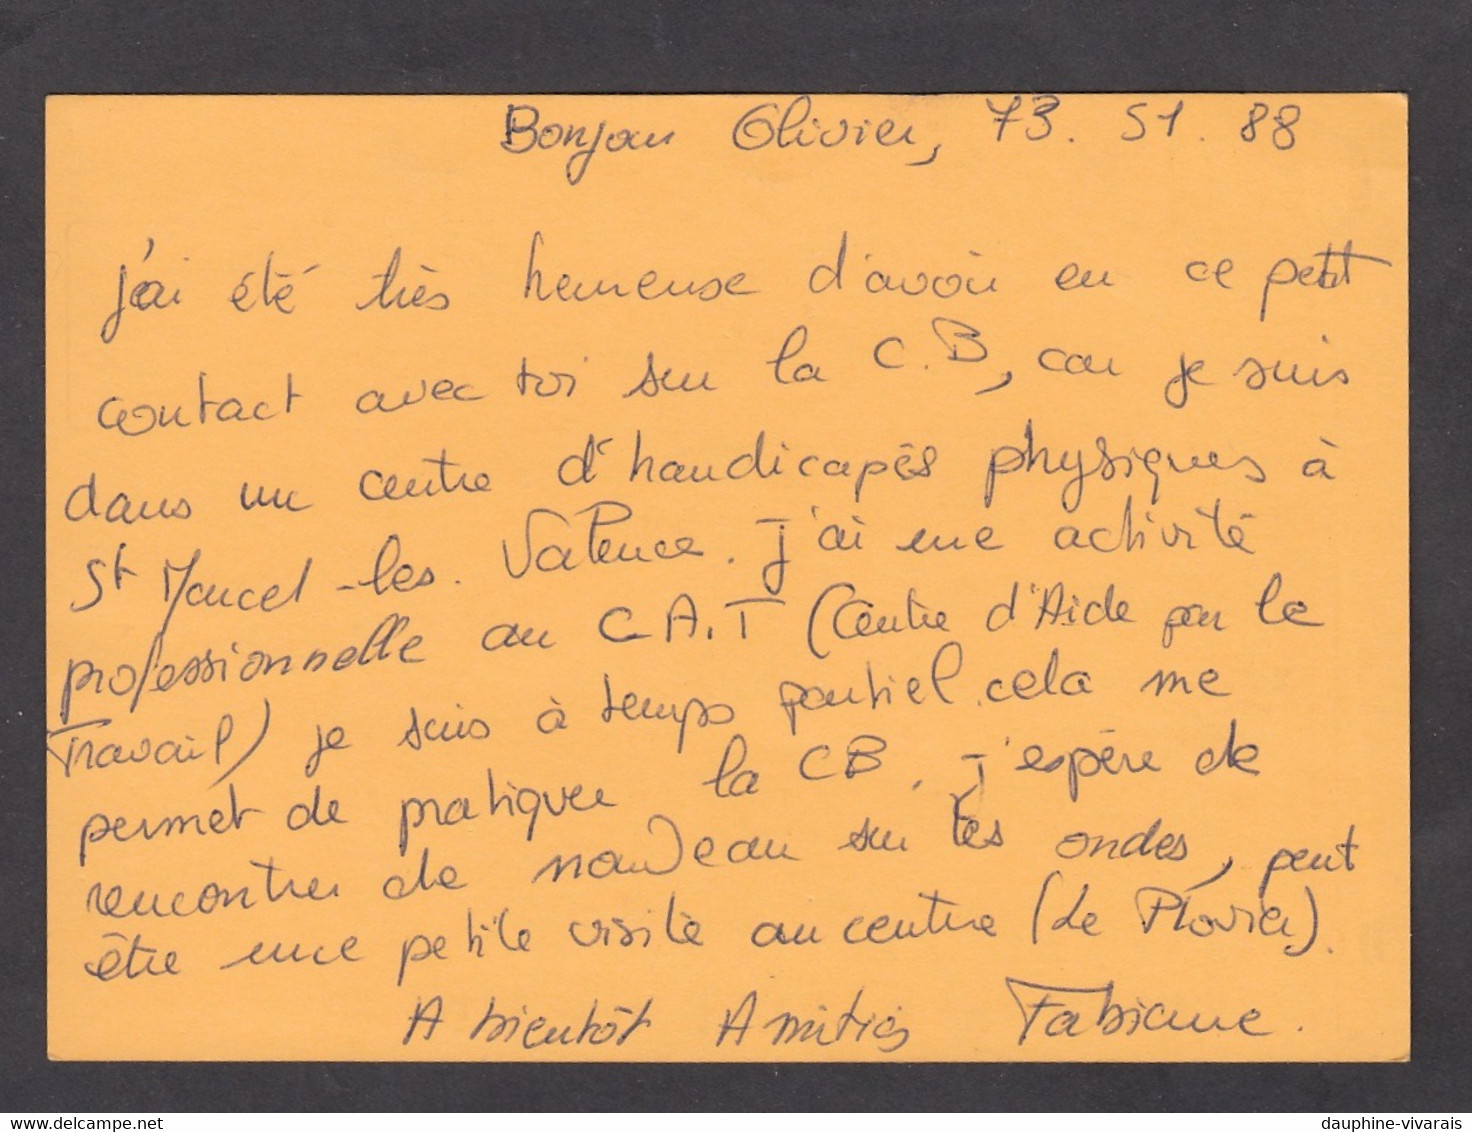 Bonjour Olivier, 73. 51. 88
J'ai été très heureuse d'avoir eu ce petit
contact avec toi sur la C.B, car je suis
dans un centre d'handicapés physiques à
St Marcel-les-Valence. J'ai une activité
professionnelle au C.A.T (Centre d'Aide par le
Travail) je suis à temps partiel. cela me
permet de pratiquer la CB, j'espère de
rencontrer de nouveau sur les ondes, peut
être une petite visite au centre (Le Plovier).
A bientôt Amitiés Fabiane.
dauphine-vivarais